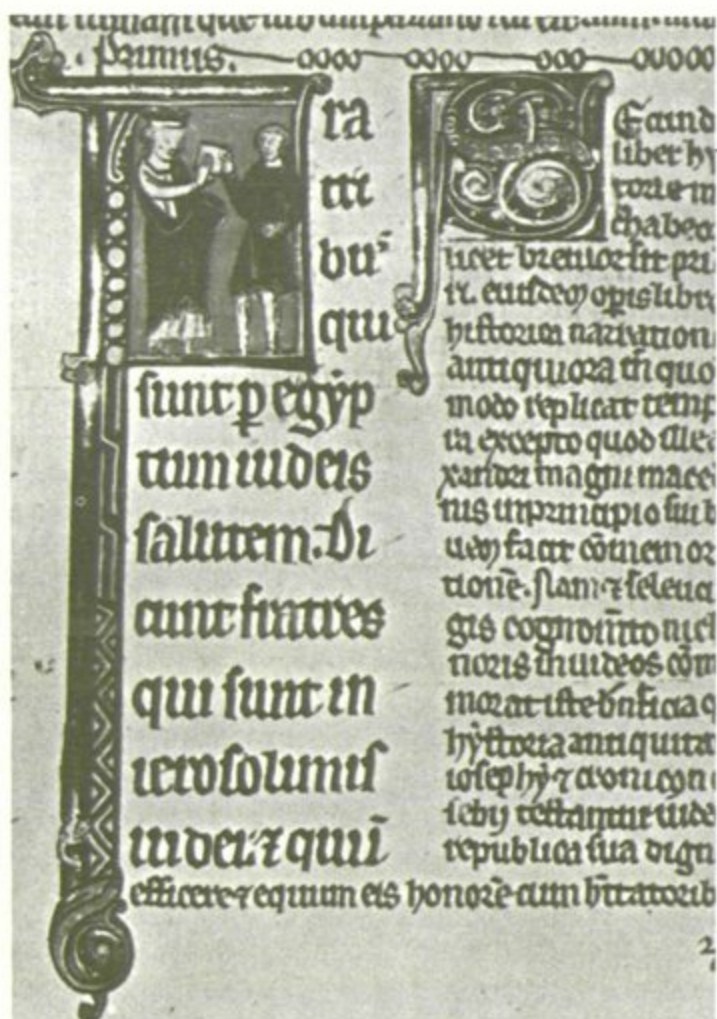 Primus.
Fra
tri
bus
qui
sunt p egyp
tum iudeis
salutem. Di
cunt fratres
qui sunt in
ierosolimis
iudei. ⁊ qui
Secund
liber hy
storie m
chabeo
licet breuior sit pri
eiusdem operis libro
historica narration
antiquiora tn quo
modo replicat temp
ra excepto quod
xandri magni mace
nis in principio sui
facit
⁊
gis nich
noris
morat iste bnficia q
hystoria antiquita
iosephy ⁊ cronicon
seby testantur iude
republica sua dign
efficere ⁊ equum eis honorē cum
2